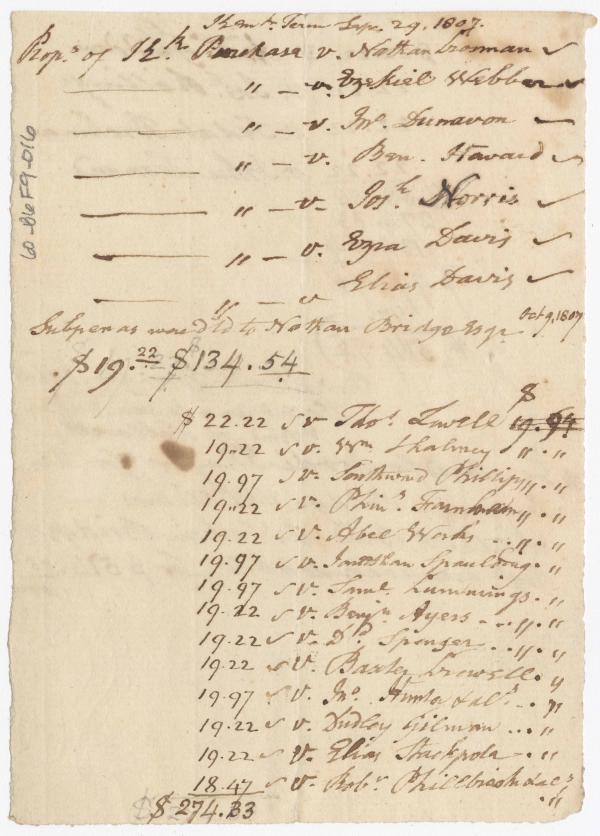 Kenn.k Term Sep. 29. 1807.
Prop.s of Kk. Purchase v. Nathan Crosman ✓
" — v. Ezekiel Webber ✓
" — v. Jno. Dunavon ✓
" — v. Ben. Howard ✓
" — v. Jos.h Norris ✓
" — v. Ezra Davis ✓
" — v Elias Davis ✓
Subpenas were dld to Nathan Bridge Esqr. Oct 9, 1807
$19.22 $134.54
$
$ 22.22 s v Tho.s Lowell 19.94
19..22 s v. Wm " . "
19.97 s v. Southward Phillips " . "
19..22 s v. Phin.s Farnham " . "
19.22 s v. Abel Works .. " . "
19.97 s v. Jonathan Spaulding . "
19.97 s v. Saml. Cummings . "
19.22 s v. Benjn Ayers - .. " . "
19.22 s v. Dd. Spenger .. " . "
19.22 s v. Baxter Crowell . "
19.97 s v. Jno. Hunter & als .. "
19.22 s v. Dudley Gilman ... "
19.22 s v. Elias Stackpola - . "
18.47 s v. Robt. Phillbrook & als
$ 274.33 "
60-B6F9-016